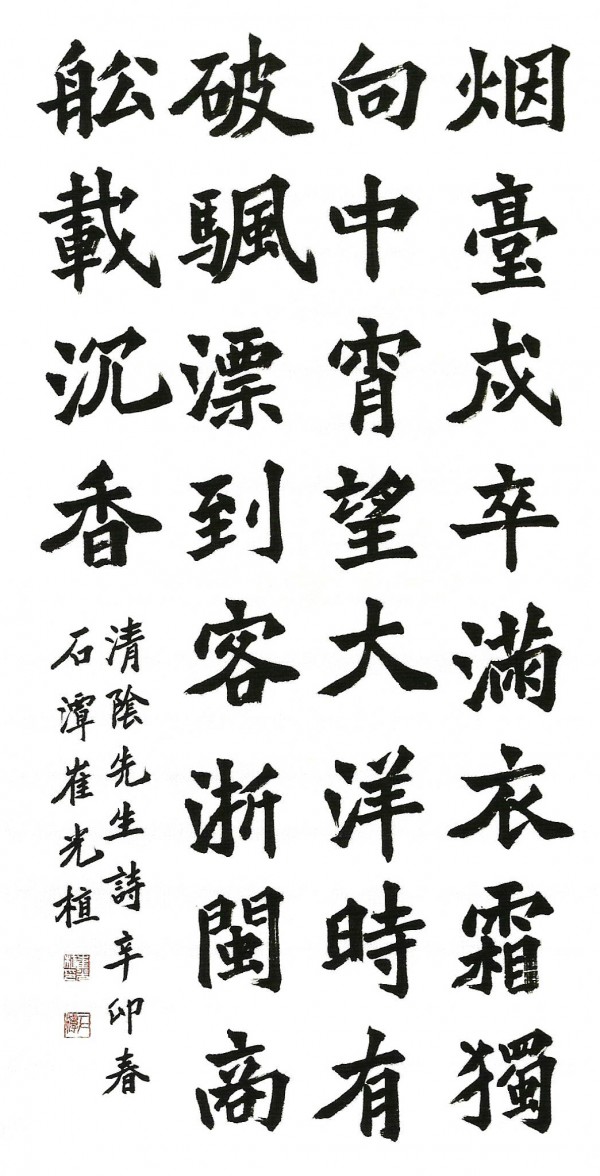 烟臺戍卒滿衣霜獨
向中宵望大洋時有
破颿漂到客浙閩商
舩載沉香
清陰先生詩辛卯春
石潭崔光植